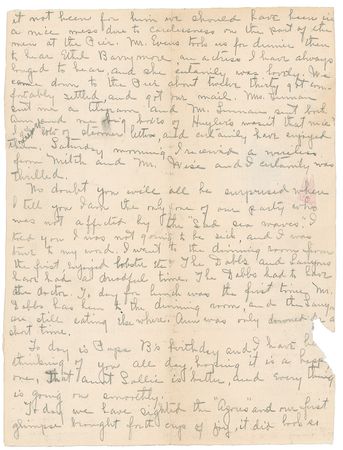 it not been for him we should have been in
a nice mess due to carelessness on the part of the
men at the Pier. Mr. Evans took us for dinner then
to hear Ethel Barrymore an actress I have always
longed to hear, and she certainly was lovely. We
came down to the Pier about twelve thirty got com-
fortably settled and got our mail. Mrs.
sent me a telegram, and Mr. and
Ann and me a big boxes of Huyler's wasn't that nice
lots of steamer letters, and certainly have enjoyed
them. Saturday morning I received a wireless
from Milth and Mr. Wise and I certainly was
thrilled.
No doubt you will all be surprised when
I tell you I am the only one of our party who
was not affected by the "Sad sea waves". I
told you I was not going to be sick, and I was
true to my word. I went to the dinning room from
the first enjoyed lobster etc. The Debbs and
have had a dreadful time. The Debbs had to have
the doctor. To day for lunch was the first time, Mr.
Debbs has been to the dinning room and the
are still eating elsewhere. Ann was only downed a
short time.
To day is Papa B's birthday and I have been
thinking of you all day, hoping it is a happy
one, that Aunt Sallie is better, and every thing
is going on smoothly.
To day we have sighted the "Azores" and our first
glimpse brought forth cups of joy, it did look so